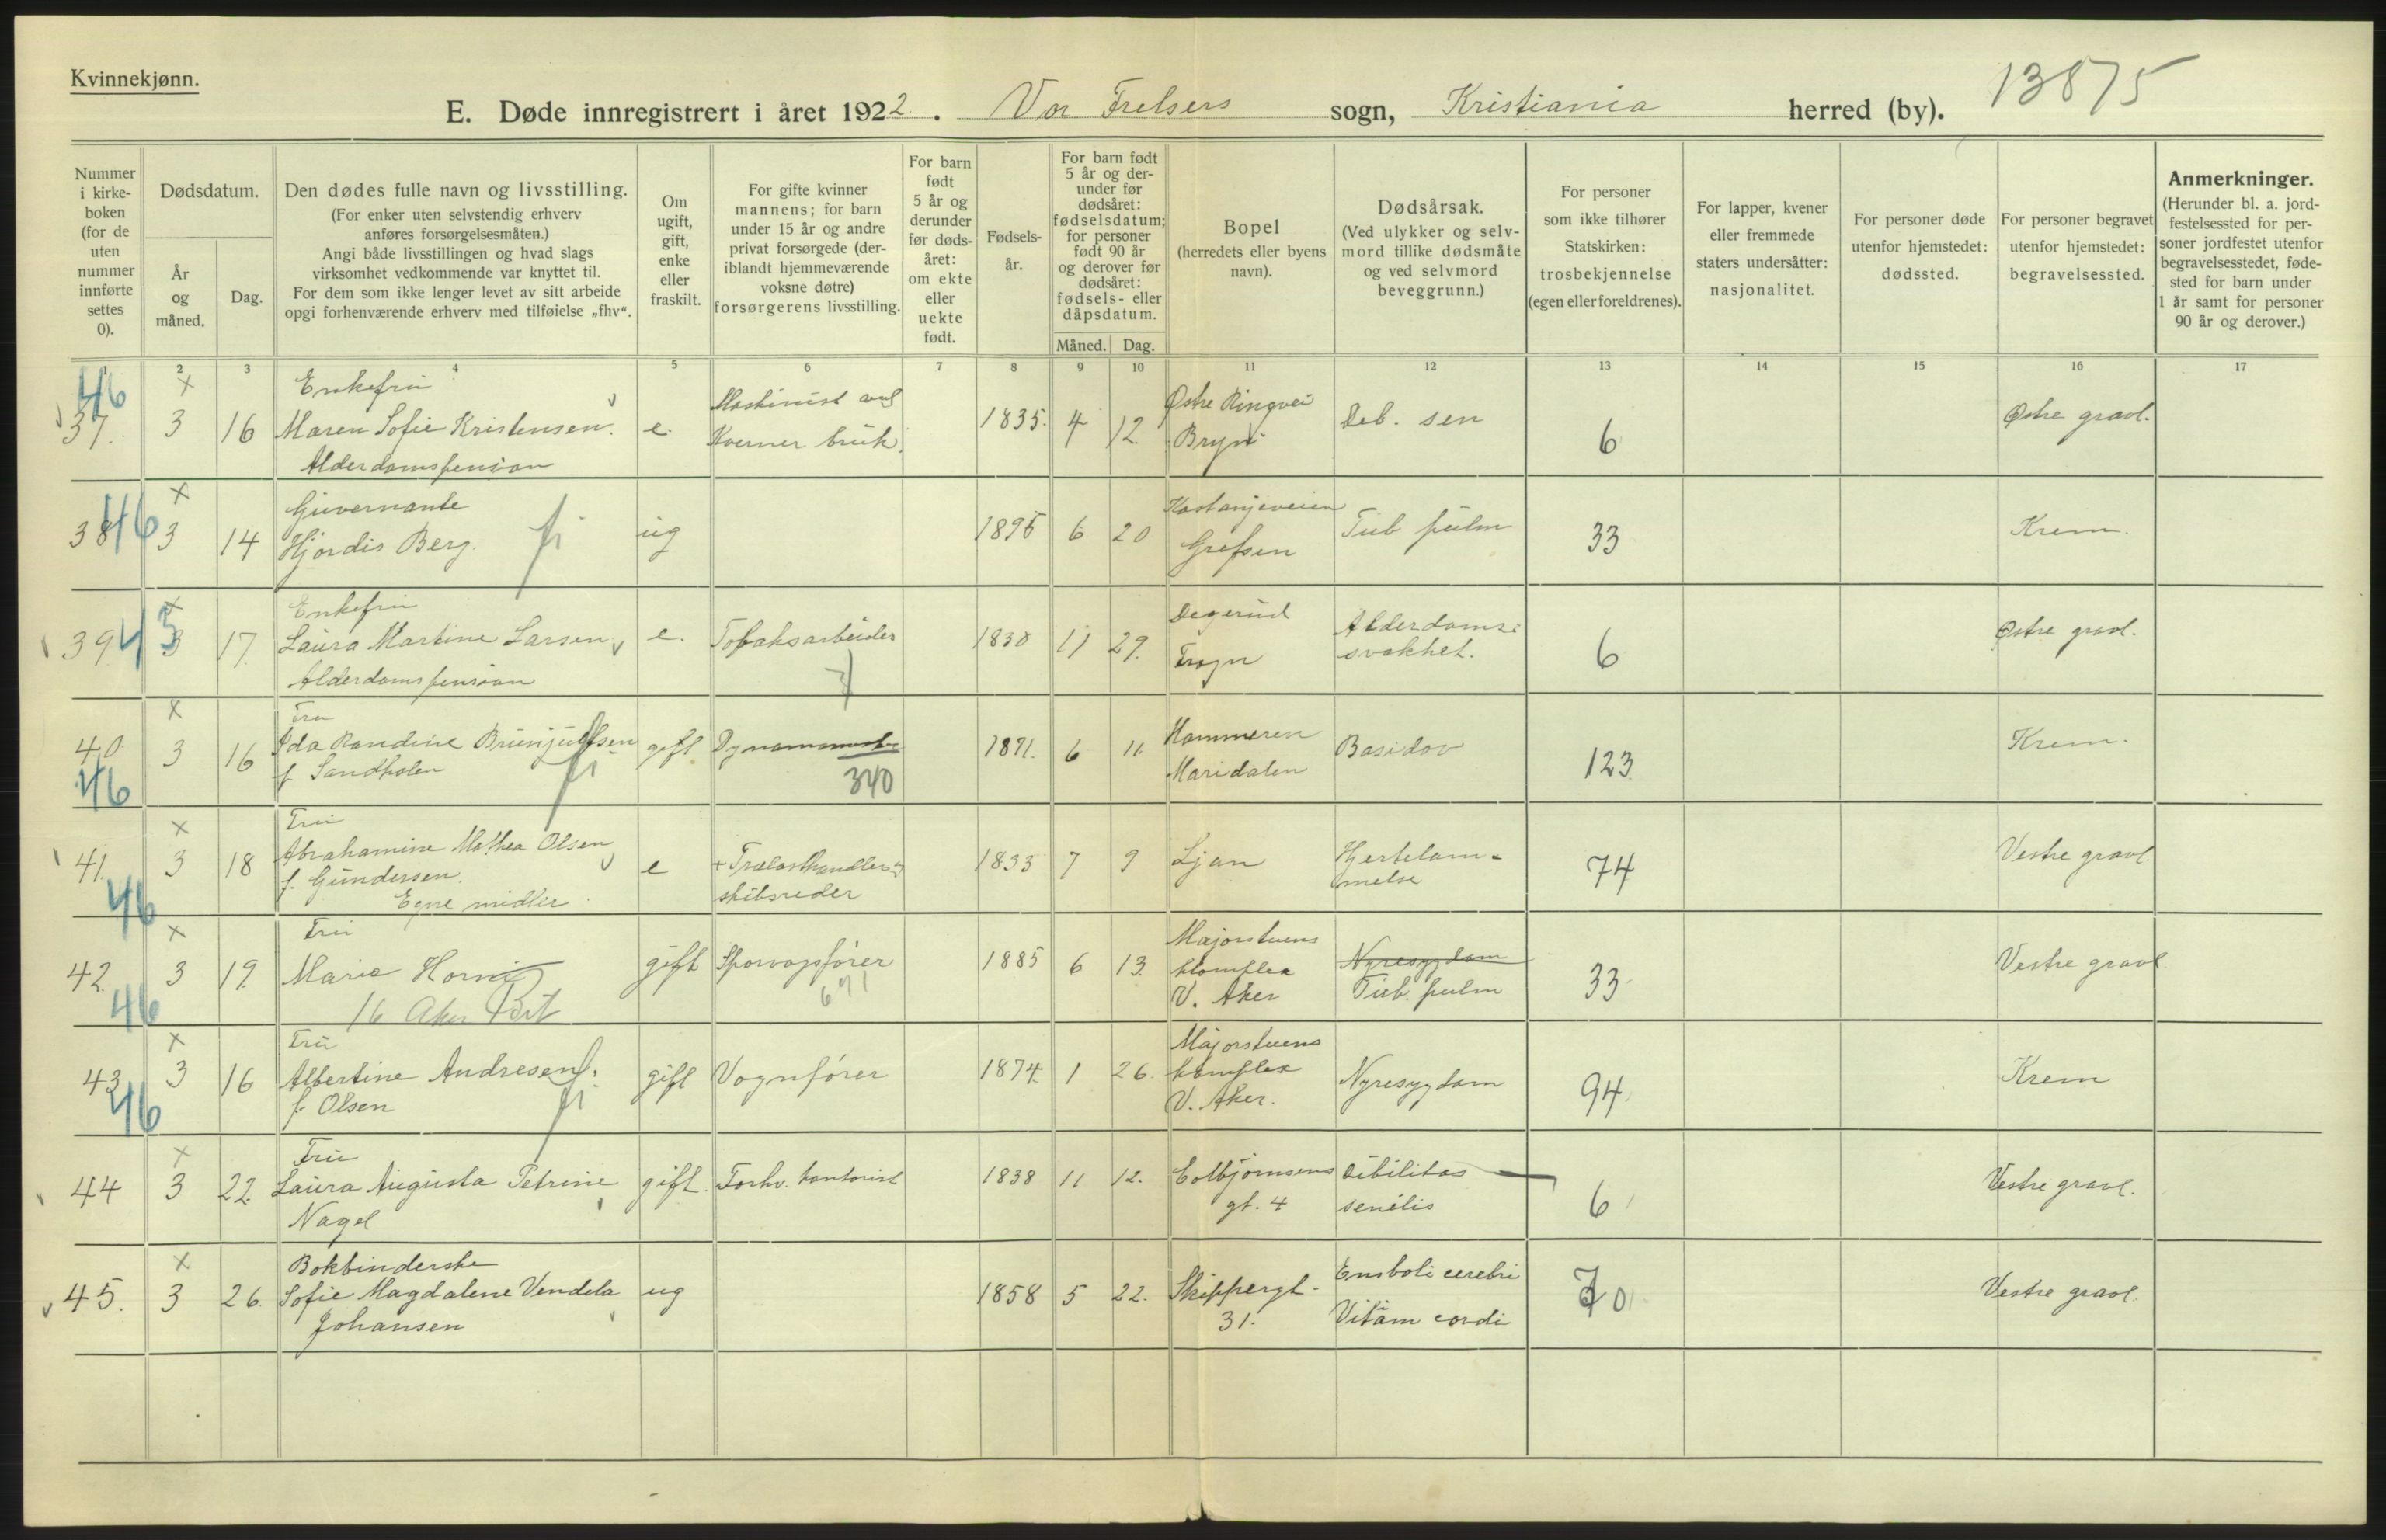 Kvinnekjønn.
13875
E. Døde innregistrert i året 1922. Vor Frelsers sogn, Kristiania herred (by).
Nummer i kirkeboken (for de uten nummer innførte settes 0).
Dødsdatum.
År og måned.
Dag.
Den dødes fulle navn og livsstilling.
(For enker uten selvstendig erhverv anføres forsørgelsesmåten.)
Angi både livsstillingen og hvad slags virksomhet vedkommende var knyttet til.
For dem som ikke lenger levet av sitt arbeide opgi forhenværende erhverv med tilføielse „fhv“.
Om ugift, gift, enke eller fraskilt.
For gifte kvinner mannens; for barn under 15 år og andre privat forsørgede (deriblandt hjemmeværende voksne døtre) forsørgerens livsstilling.
For barn født 5 år og derunder før dødsåret: om ekte eller uekte født.
Fødselsår.
For barn født 5 år og derunder før dødsåret: fødselsdatum; for personer født 90 år og derover før dødsåret: fødsels- eller dåpsdatum.
Måned. Dag.
Bopel
(herredets eller byens navn).
Dødsårsak.
(Ved ulykker og selvmord tillike dødsmåte og ved selvmord beveggrunn.)
For personer som ikke tilhører Statskirken: trosbekjennelse (egen eller foreldrenes).
For lapper, kvener eller fremmede staters undersåtter: nasjonalitet.
For personer døde utenfor hjemstedet: dødssted.
For personer begravet utenfor hjemstedet: begravelsessted.
Anmerkninger.
(Herunder bl. a. jordfestelsessted for personer jordfestet utenfor begravelsesstedet, fødested for barn under 1 år samt for personer 90 år og derover.)
1 2 3 4 5 6 7 8 9 10 11 12 13 14 15 16 17
46 x
37. 3 16 Enkefru Maren Sofie Kristensen. Alderdomspension e. Maskinist ved Kverner bruk. 1835. 4 12. Østre Ringvei Bryn Deb. sen 6 Østre gravl.
46 x
38 3 14 Guvernante Hjørdis Berg. fi ug 1895 6 20 Kastanjeveien Grefsen Tub pulm 33 Krem.
45 x
39 3 17. Enkefru Laura Martine Larsen Alderdomspension e. Tobaksarbeider 1830 11 29. Degerud Frogn Alderdomssvakhet. 6 Østre gravl.
x
40 3 16 Fru Ida Randine f. Sandholen fi gift 340 1871. 6 11 Hammeren Maridalen Basidov 123 Krem.
46
x
41. 3 18 Fru Abrahamine Mathea Olsen f. Gundersen. Egne midler. e + Trælasthandler skibsreder 1833 7 9 Ljan Hjertelammelse 74 Vestre gravl.
46
x
42. 3 19. Fru Marie 16 Aker gift Sporvogsfører 671 1885 6 13. Majorstuens komplex V. Aker Nyresygdom Tub. pulm 33 Vestre gravl
46
x
43 3 16 Fru Albertine Andresen. f. Olsen fi gift Vognfører 1874. 1 26. Majorstuens komplex V. Aker. Nyresygdom 94 Krem
46
x
44 3 22. Fru Laura Augusta Petrine Nagel gift. Forhv. kontorist 1838 11 12. gt. 4 Debilitas senilis 6 Vestre gravl.
x
45. 3 26. Bokbinderske Sofie Magdalene Vendela Johansen ug 1858 5 22. Skippergt. 31. Emboli cerebri Vitium cordi 70 Vestre gravl.